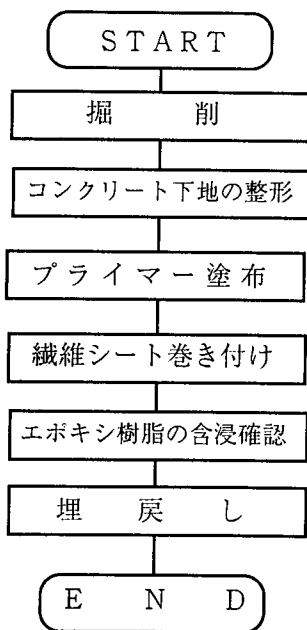 START
掘削
コンクリート下地の整形
プライマー塗布
繊維シート巻き付け
エポキシ樹脂の含浸確認
埋戻し
END